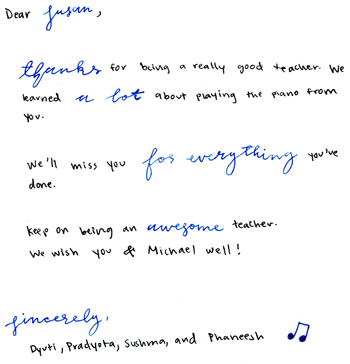 Dear Susan,
thanks for being a really good teacher. We
learned a lot about playing the piano from
you.
We'll miss you for everything you've
done.
Keep on being an awesome teacher.
We wish you & Michael well!
Sincerely,
Dyuti, Pradyota, Sushma, and Phaneesh